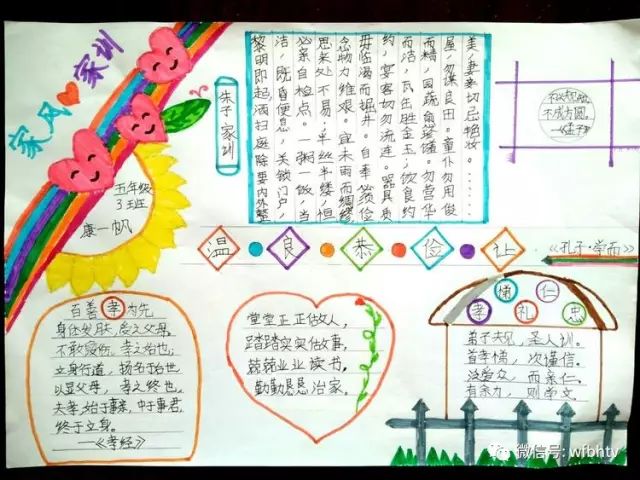 家风家训
五年级
3班
康一帆
朱子家训
黎明即起,洒扫庭除,要内外整
洁,既昏便息,关锁门户,
必亲自检点。一粥一饭,当
思来处不易;半丝半缕,恒
念物力维艰。宜未雨而绸缪
毋临渴而掘井。自奉必须俭
约,宴客切勿流连。器具质
而洁,瓦缶胜金玉;饮食约
而精,园蔬愈珍馐。勿营华
屋,勿谋良田。童仆勿用俊
美,妻妾切忌艳妆。……
不以规矩,
不成方圆。
—《孟子》
温良恭俭让
《孔子·学而》
百善孝为先
身体发肤,受之父母,
不敢毁伤,孝之始也;
立身行道,扬名于后世
以显父母,孝之终也,
夫孝,始于事亲,中于事君,
终于立身。
—《孝经》
堂堂正正做人,
踏踏实实做事,
兢兢业业读书,
勤勤恳恳治家。
孝悌礼仁忠
弟子规,圣人训。
首孝悌,次谨信。
泛爱众,而亲仁。
有余力,则学文。
微信号: wfbhtv